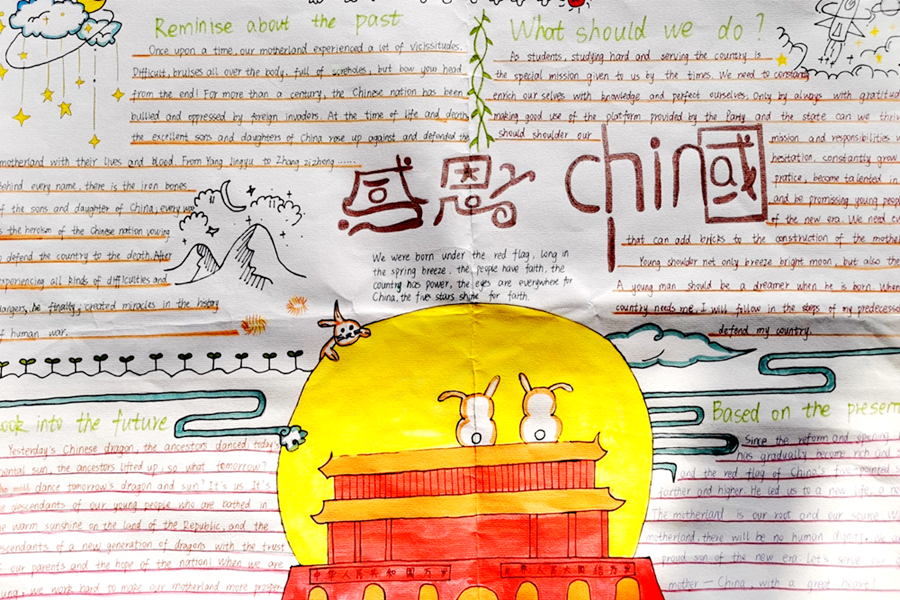 Reminise about the past
Once upon a time, our motherland experienced a lot of vicissitudes.
Difficult, bruises all over the body, full of screholes, but bow your head
from the end! For more than a century, the Chinese nation has been
bullied and oppressed by foreign invaders. At the time of life and death
the excellent sons and daughters of China rose up against and defended the
motherland with their lives and blood. From Yang Jingyu to Zhang zizhong ......
Behind every name, there is the iron bones
of the sons and daughter of China, every war
is the heroism of the Chinese nation vowing
to defend the country to the death. After
experiencing all kinds of difficulties and
dangers, he finally created miracles in the history
of human war.
What should we do?
As students, studying hard and serving the country is
the special mission given to us by the times. We need to constantly
enrich our selves with knowledge and perfect ourselves. Only by always with gratitud
making good use of the platform provided by the Party and the state can we thriv
should shoulder our mission and responsibilities w
hesitation, constantly grow
pratice, become talented in
and be promising young people
of the new era. We need
that can add bricks to the construction of the mothe
Young shoulder not only breeze bright moon, but also the
A young man should be a dreamer when he is born. When
country needs me. I will follow in the steps of my predecesso
defend my country.
感恩
china
國
We were born under the red flag, long in
the spring breeze. the people have faith, the
country has power, the eyes are everywhere for
China, the five stars shine for faith.
Look into the future
Yesterday's Chinese dragon, the ancestors danced, today's
oriental sun, the ancestors lifted up, so what tomorrow?
Who will dance tomorrow's dragon and sun? It's us. It's
descendants of our young people who are bathed in
the warm sunshine on the land of the Republic, and the
descendants of a new generation of dragons with the trust
of our parents and the hope of the nation! When we are
young, we work hard to make our motherland more prosper
Based on the present
Since the reform and opening
has gradually become rich and
and the red flag of China's five-pointed
farther and higher. He led us to a new life, a
The motherland is our root and our source. W
motherland, there will be no human dignity.
proud son of the new era. Let's serve our
mother — China, with a great heart!
中华人民共和国万岁
世界人民大团结万岁